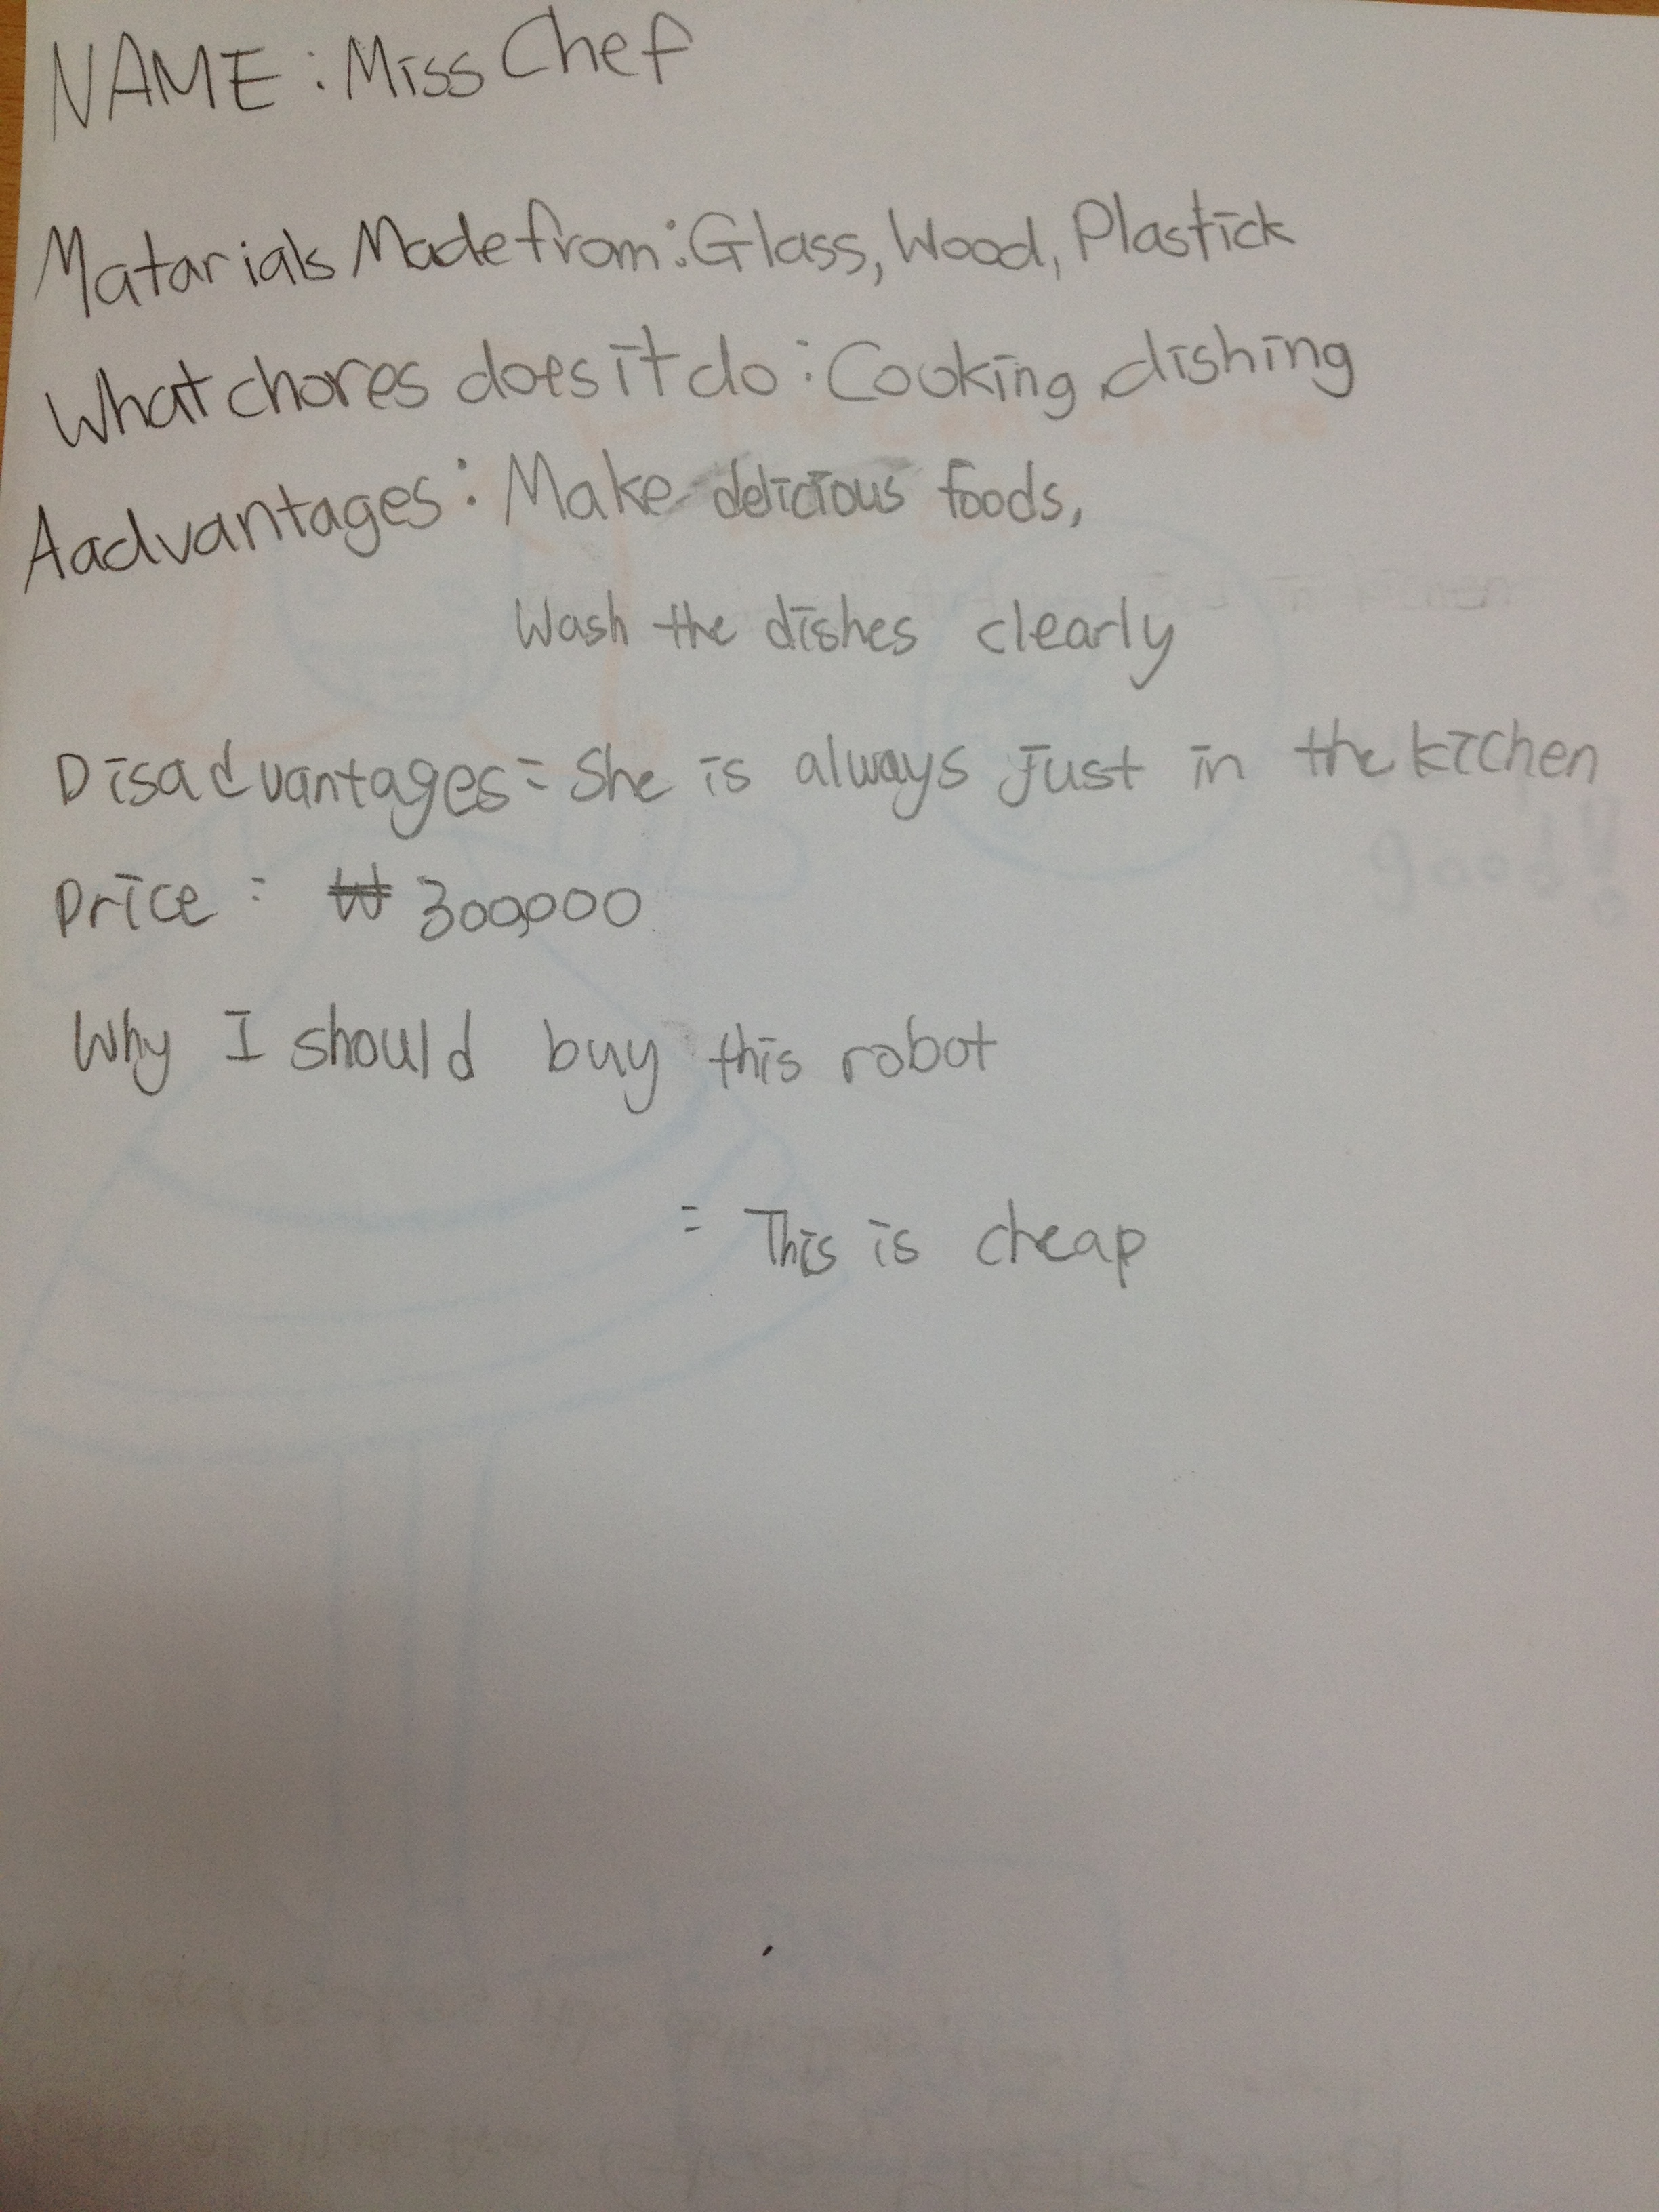 NAME : Miss Chef
Matarials Made from : Glass, Wood, Plastick
What chores does it do : Cooking, dishing
Aadvantages : Make delicious foods,
Wash the dishes clearly
Disadvantages = She is always just in the kichen
Price : ₩ 300,000
Why I should buy this robot
= This is cheap
good!!